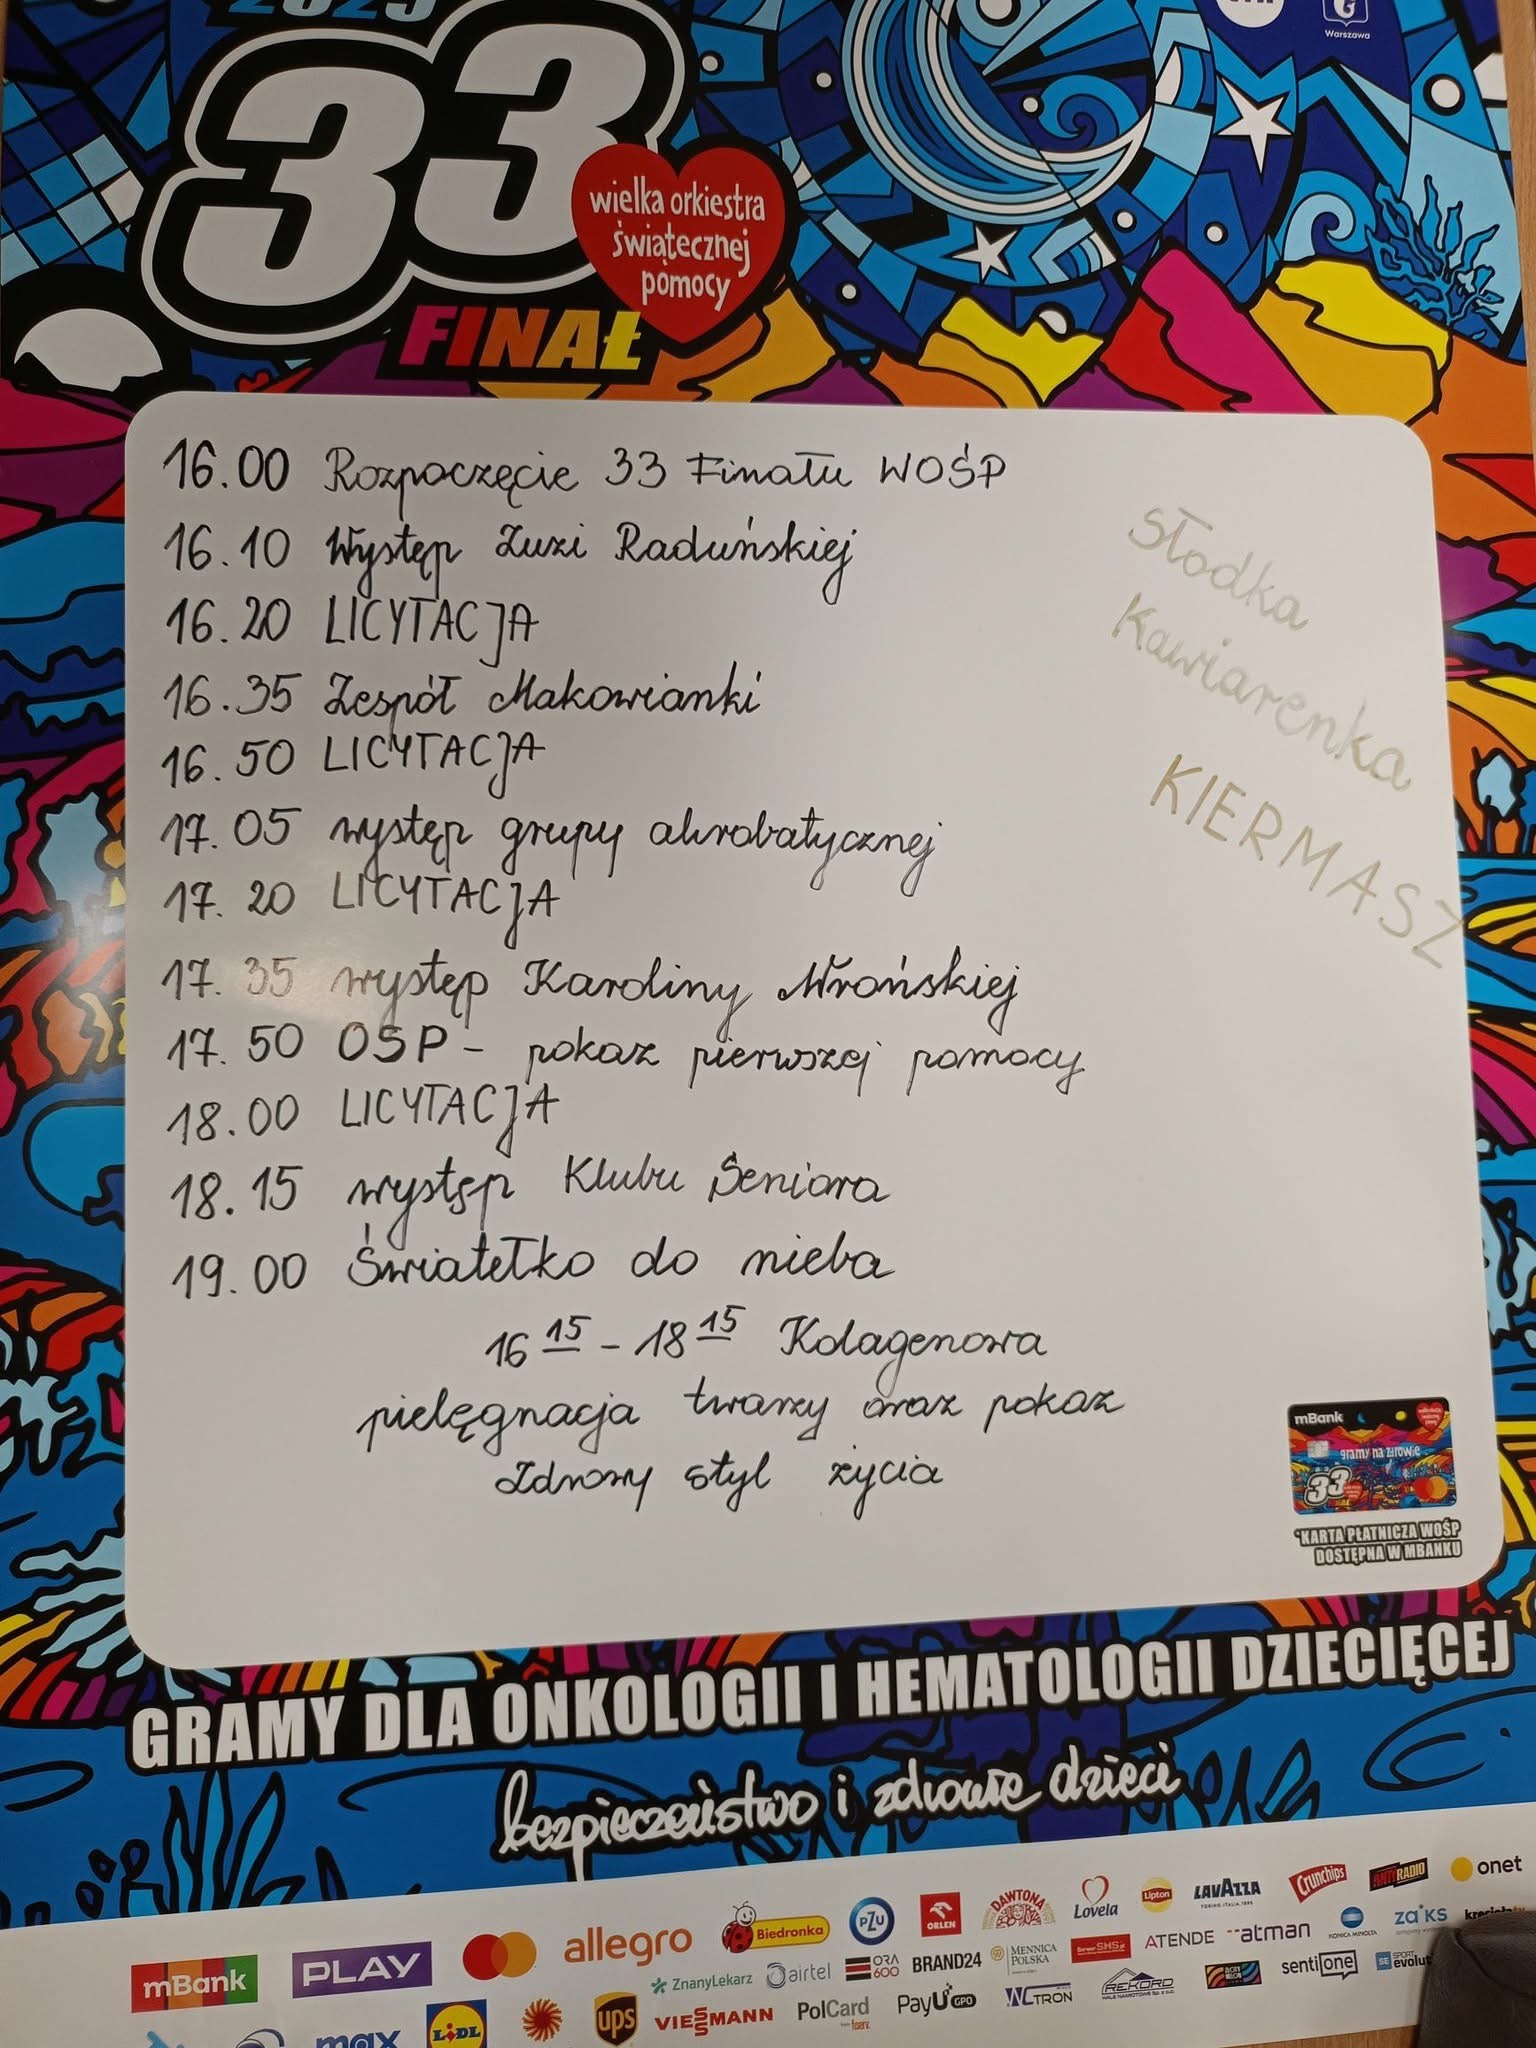 2025
33
wielka orkiestra
świątecznej
pomocy
FINAŁ
Warszawa
16.00 Rozpoczęcie 33 Finału WOŚP
16.10 Występ Zuzi Raduńskiej
16.20 LICYTACJA
16.35 Zespół Makowianki
16.50 LICYTACJA
17.05 występ grupy akrobatycznej
17.20 LICYTACJA
17.35 występ Karoliny Wrońskiej
17.50 OSP - pokaz pierwszej pomocy
18.00 LICYTACJA
18.15 występ Klubu Seniora
19.00 Światełko do nieba
16 15 - 18 15 Kolagenowa
pielęgnacja twarzy oraz pokaz
Zdrowy styl życia
Słodka
Kawiarenka
KIERMASZ
mBank
gramy na zdrowie
33
*KARTA PŁATNICZA WOŚP
DOSTĘPNA W MBANKU
GRAMY DLA ONKOLOGII I HEMATOLOGII DZIECIĘCEJ
bezpieczeństwo i zdrowie dzieci
mBank PLAY allegro Biedronka PZU ORLEN DAWTONA Lovela Lipton LAVAZZA Crunchips ANTYRADIO onet
ZnanyLekarz airtel ORA 600 BRAND24 MENNICA POLSKA SerwerSMS.pl ATENDE atman KONICA MINOLTA ZAiKS
max LIDL ups VIESSMANN PolCard from fiserv. PayU GPO NCTRON REKORD sentione SPORT